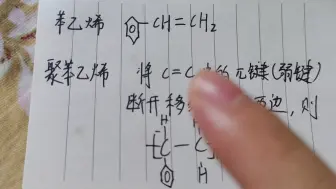 苯乙烯 CH=CH₂
聚苯乙烯 将 C=C 的π键(弱键)
断开移 两边,则
H H
[C — C]
H